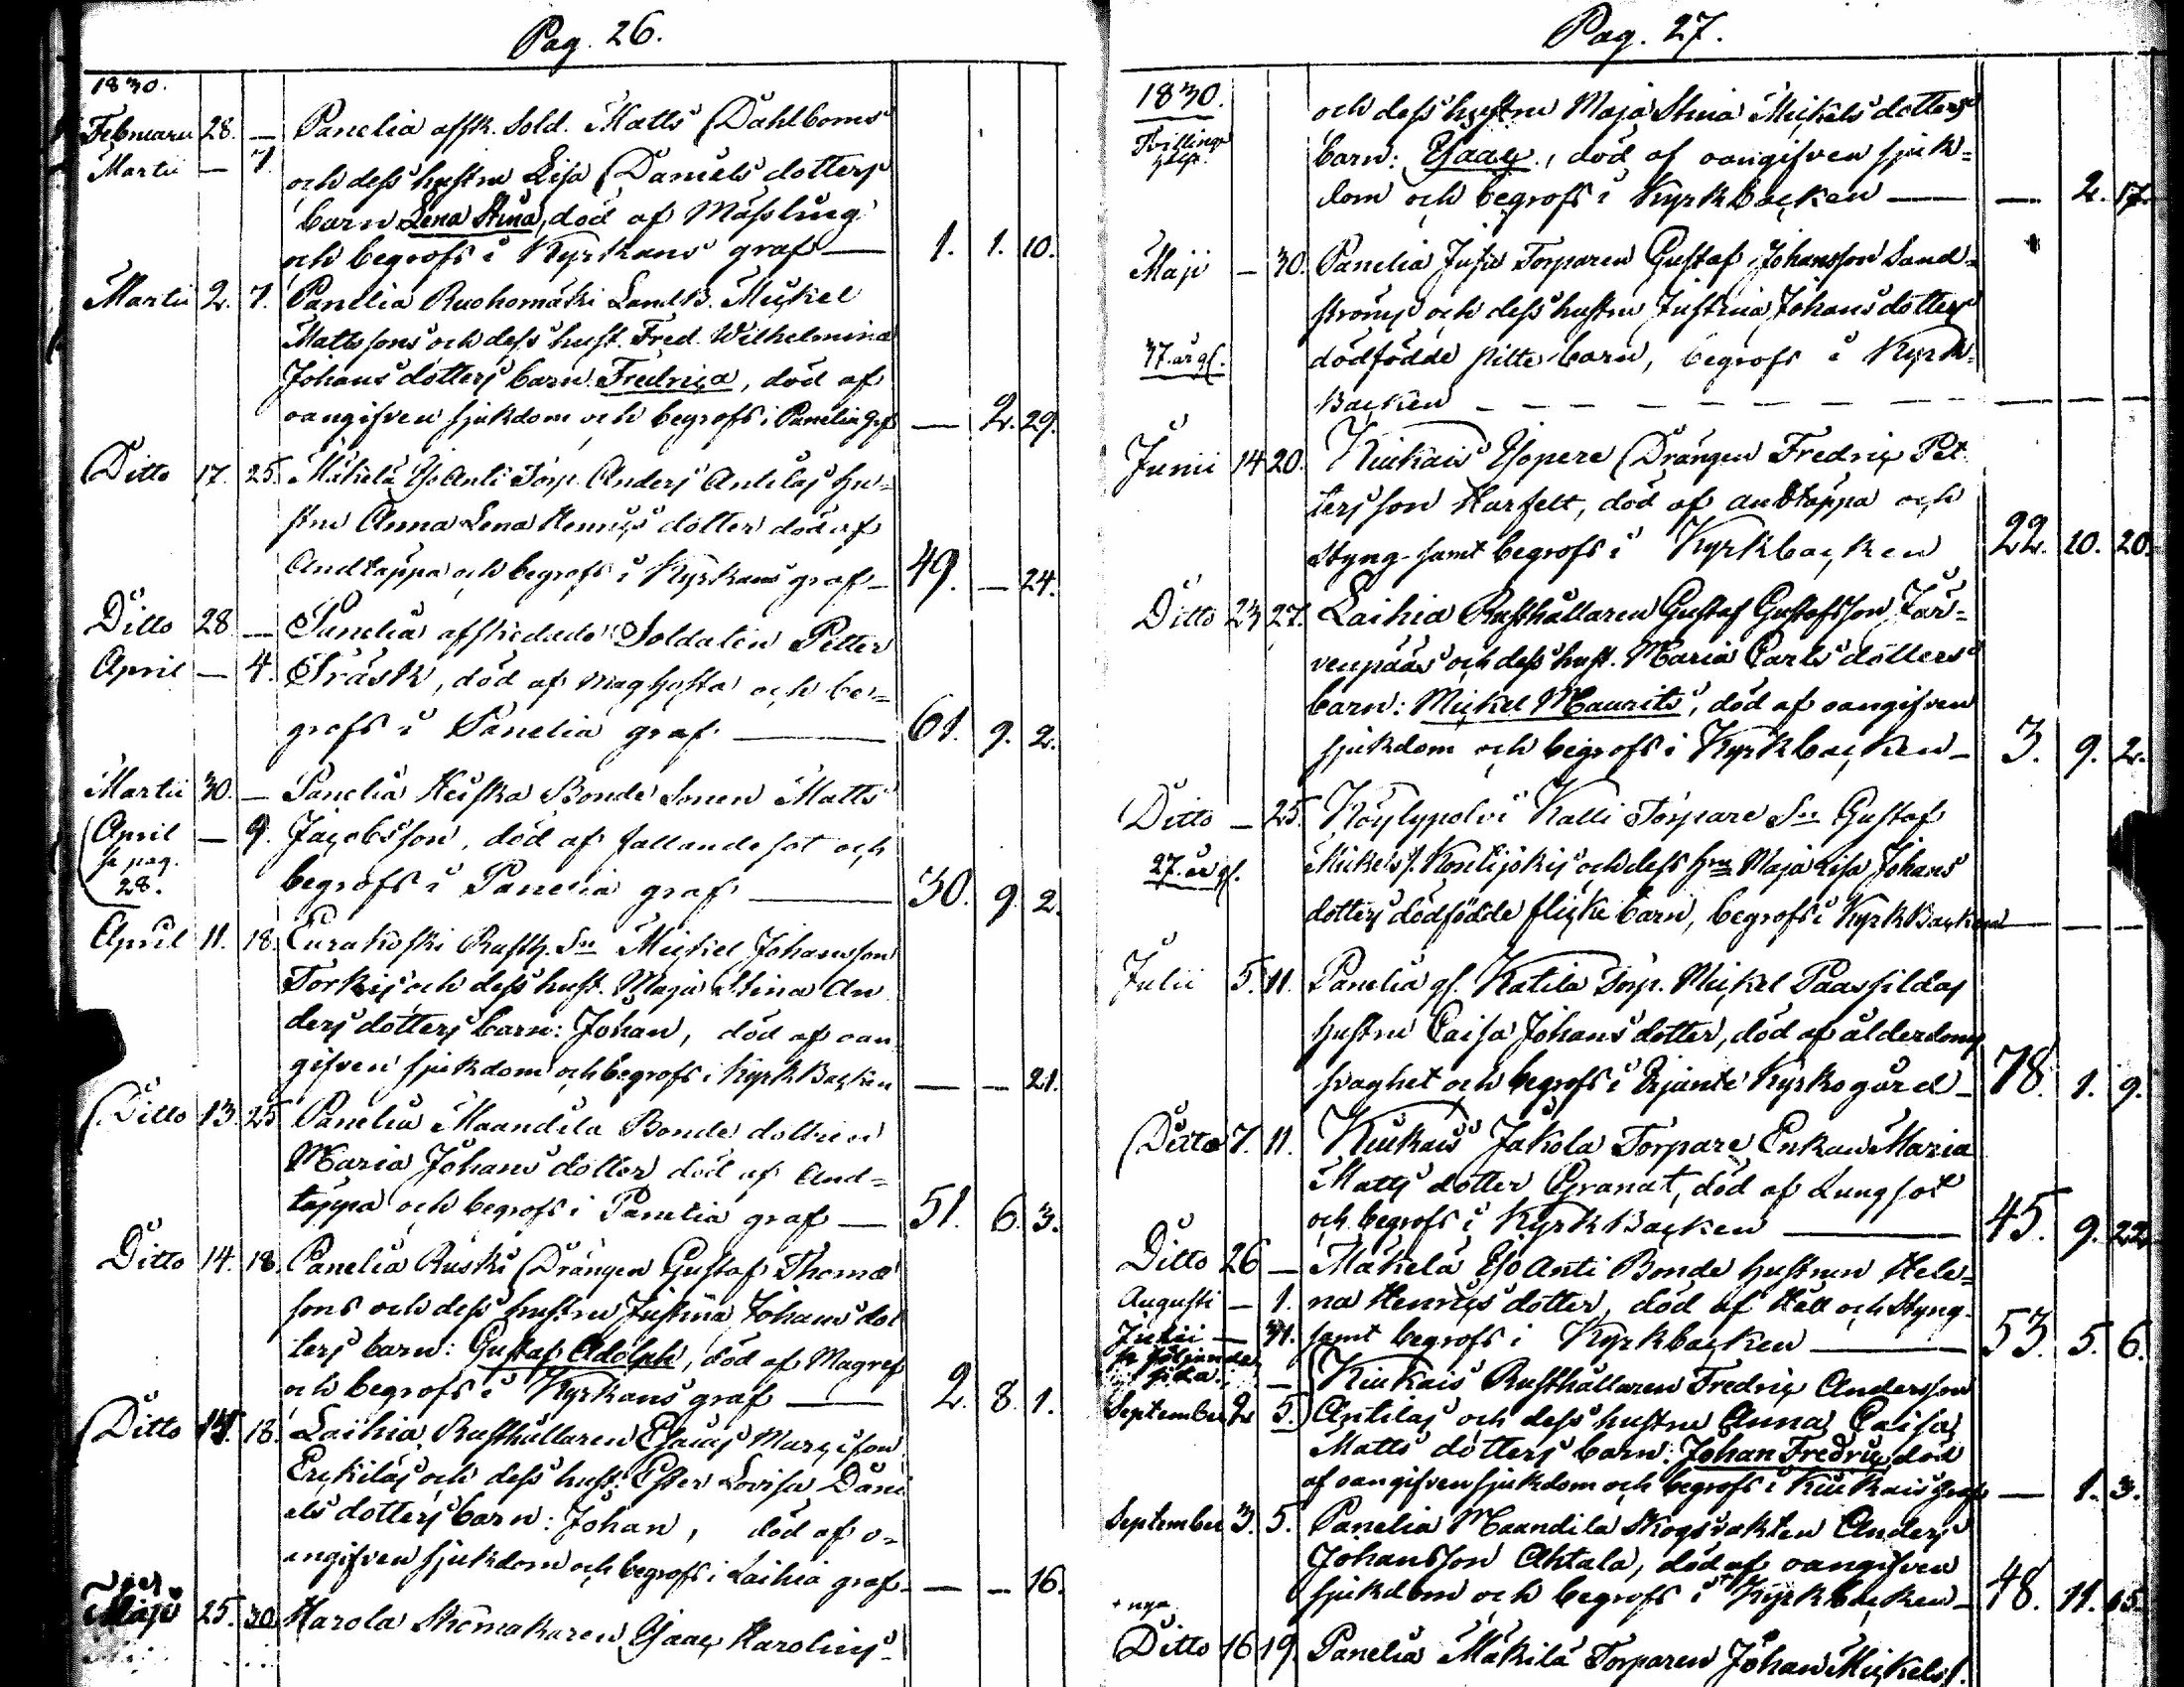 Pag. 26.
1830.
Februarii 28. — Panelia afsk. Sold. Matts Dahlboms
Martii — 7. och dess hustru Lisa Daniels dotters
barn Lena Stina, död af Mässling
och begrofs i Kyrkans graf — 1. 1. 10.
Martii 2. 7. Panelia Ruohomäki Landb. Mickel
Matssons och dess hust. Fred. Wilhelmina
Johans dotters barn Fredrica, död af
oangifven sjukdom och begrofs i Panelia grf — 2. 29.
Ditto 17. 25. Mäkelä Yso Anti Torp. Anders Antilas hu-
stru Anna Lena Henrics dotter död af
Andtäppa och begrofs i Kyrkans graf — 49. — 24.
Ditto 28 — Panelia afskedade Soldaten Petter
April — 4. Träsk, död af maghosta och be-
grofs i Panelia graf — 61. 9. 2.
Martii 30. — Panelia Heiska Bonde Sonen Matts
April — 9. Jacobsson, död af fallandesot och
se pag.
28.
begrofs i Panelia graf — 30. 9. 2.
April 11. 18. Eurakoski Rusth. Sn Mickel Johansson
Torkis och dess hust. Maja Stina An
ders dotters barn: Johan, död af oan
gifven sjukdom och begrofs i Kyrkbacken — — 21.
Ditto 13. 25 Panelia Maandila Bonde dottren
Maria Johans dotter död af And-
täppa och begrofs i Panelia graf — 51. 6. 3.
Ditto 14. 18. Panelia Ruski Drängen Gustaf Thomæ
sons och dess hustru Justina Johans dot
ters barn: Gustaf Adolph, död af Magref
och begrofs i Kyrkans graf — 2. 8. 1.
Ditto 18. Laihia Rusthållaren Esaias
Erckilas och dess hust. Ester Lovisa Dani
els dotters barn: Johan, död af o-
angifven sjukdom och begrofs i Laihia graf — — 16.
Maji 25. 30. Harola Skomakaren Isaac Harolins
Pag. 27.
1830.
och dess hustru Maja Stina Mickels dotters
Tvillings
barn: Isaac, död af oangifven sjuk-
dom och begrofs i Kyrkbacken — — 2. 17.
Maji — 30. Panelia Torparen Gustaf Johansson Sand-
ströms och dess hustru Justina Johans dotters
37. år gl.
dödfödde pilte barn, begrofs i Kyrk-
Backen — — —
Junii 14 20. Kiukais Yso Drängen Fredric Pet
tersson Harfelt, död af andtäppa och
Styng samt begrofs i Kyrkbacken 22. 10. 20.
Ditto 23 27. Laihia Rusthållaren Gustaf Gustafsson Jär-
venpääs och dess hust. Maria Carls dotters
barn: Mickel Maurits, död af oangifven
sjukdom och begrofs i Kyrkbacken — 3. 9. 2.
Ditto — 25. Köylypolvi Kalli Torpare Sn Gustaf
27. år gl.
Mickels s. Kontijokis och dess Hru Maja Lisa Johans
dotters dödfödde flicke barn, begrofs i KyrkBacken — — —
Julii 5. 11. Panelia gl. Katila Torp. Mickel Paassildas
hustru Caisa Johans dotter, död af ålderdoms
svaghet och begrofs i Irjante Kyrkogård — 78. 1. 9.
Ditto 7. 11. Kiukais Jakola Torpare Enkan Maria
Matts dotter Granat, död af Lungsot
och begrofs i KyrkBacken — 45. 9. 22.
Ditto 26 — Mäkelä Yso Anti Bonde hustrun Hele-
Augusti — 1. na Henrics dotter, död af Håll och Styng
Julii — 31. samt begrofs i Kyrkbacken — 53. 5. 6.
se följande
sida.
— Kiukais Rusthållaren Fredric Andersson
September 2. 5. Antilas och dess hustru Anna Caisa
Matts dotters barn: Johan Fredric, död
af oangifven sjukdom och begrofs i Kiukais graf — 1. 3.
September 3. 5. Panelia Maandila Skogsvakten Anders
Johansson Ahtala, död af oangifven
sjukdom och begrofs i + Kyrkbacken — 48. 11. 15.
+ nya
Ditto 16 19. Panelia Mäkilä Torparen Johan Mickels s.